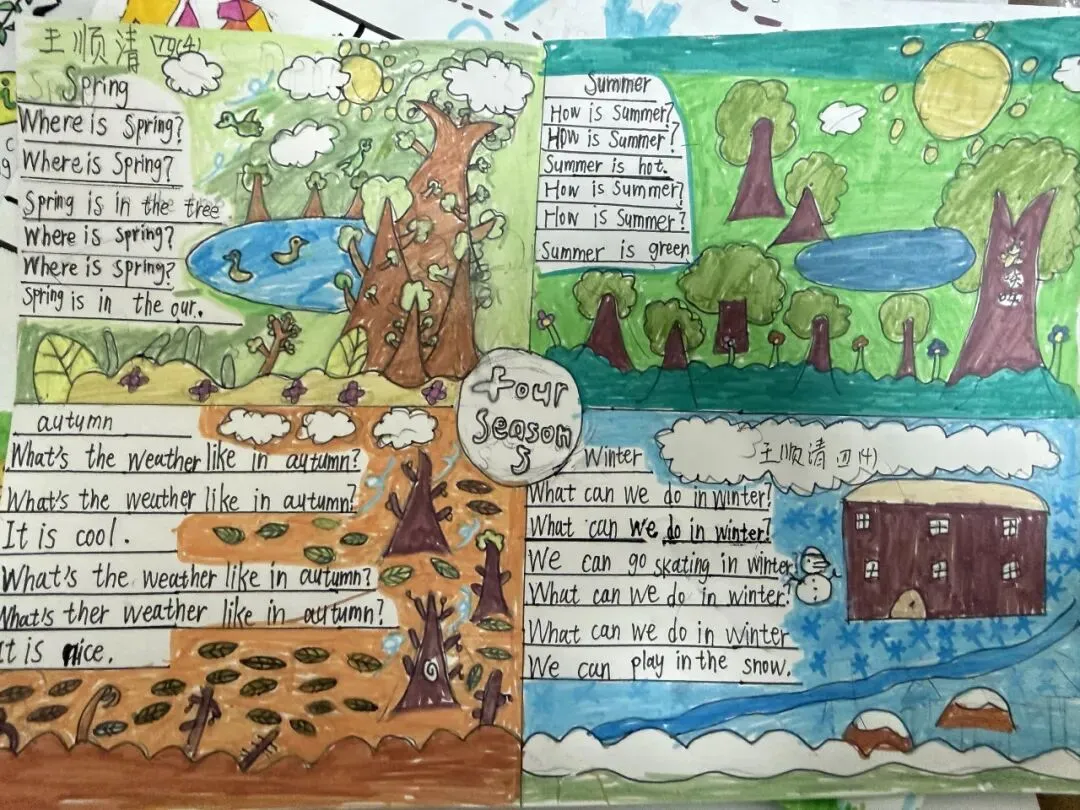 王顺清 四(4)
Spring
Where is Spring?
Where is Spring?
Spring is in the tree
Where is Spring?
Where is Spring?
Spring is in the our.
Summer
How is Summer?
How is Summer?
Summer is hot.
How is Summer?
How is Summer?
Summer is green
four
season
s
autumn
What's the weather like in autumn?
What's the weather like in autumn?
It is cool.
What's the weather like in autumn?
What's ther weather like in autumn?
it is nice.
Winter
王顺清 四(4)
What can we do in winter?
What can we do in winter?
We can go skating in winter
What can we do in winter?
What can we do in winter
We can play in the snow.